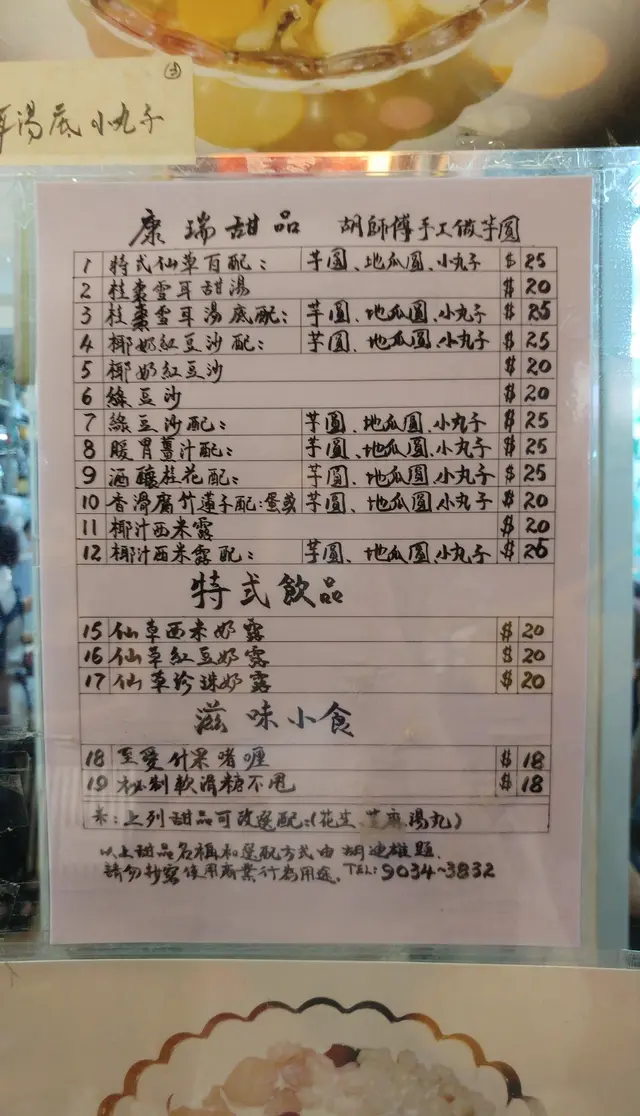 湯底小丸子
康瑞甜品 胡師傅手工做芋圓
1 特式仙草百配： 芋圓、地瓜圓、小丸子 $ 25
2 桂棗雪耳甜湯 $ 20
3 桂棗雪耳湯底配： 芋圓、地瓜圓、小丸子 $ 25
4 椰奶紅豆沙配： 芋圓、地瓜圓、小丸子 $ 25
5 椰奶紅豆沙 $ 20
6 綠豆沙 $ 20
7 綠豆沙配： 芋圓、地瓜圓、小丸子 $ 25
8 暖胃薑汁配： 芋圓、地瓜圓、小丸子 $ 25
9 酒釀桂花配： 芋圓、地瓜圓、小丸子 $ 25
10 香滑腐竹蓮子配：蛋或 芋圓、地瓜圓、小丸子 $ 20
11 椰汁西米露 $ 20
12 椰汁西米露配： 芋圓、地瓜圓、小丸子 $ 25
特式飲品
15 仙草西米奶露 $ 20
16 仙草紅豆奶露 $ 20
17 仙草珍珠奶露 $ 20
滋味小食
18 至愛什果啫喱 $ 18
19 秘制軟滑糖不甩 $ 18
*：上列甜品可改選配：（花生、芝麻湯丸）
以上甜品名稱和選配方式由胡連雄題.
請勿抄寫使用商業行為用途. TEL: 9034-3832